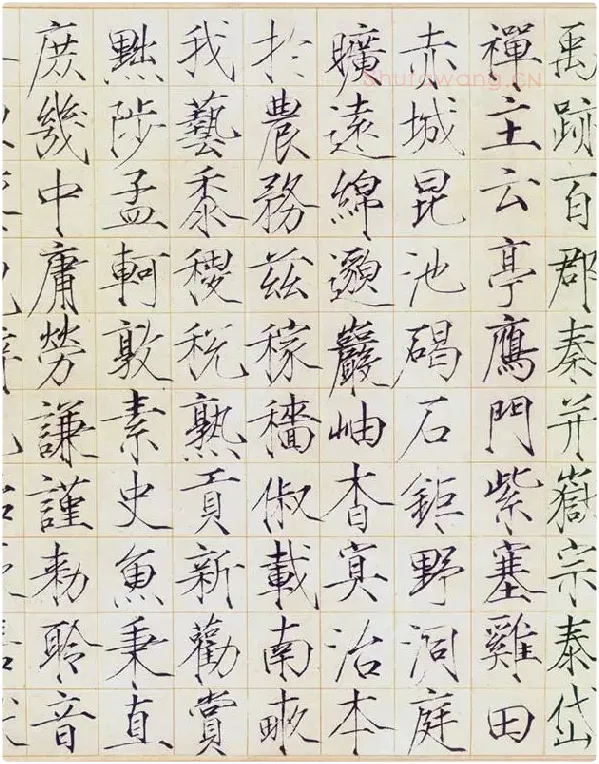 禹跡百郡秦并嶽宗泰岱
禪主云亭鷹門紫塞雞田
赤城昆池碣石鉅野洞庭
曠遠綿邈巖岫杳冥治本
於農務茲稼穡俶載南畝
我藝黍稷稅熟貢新勸賞
黜陟孟軻敦素史魚秉直
庶幾中庸勞謙謹勑聆音
Shufawang.CN